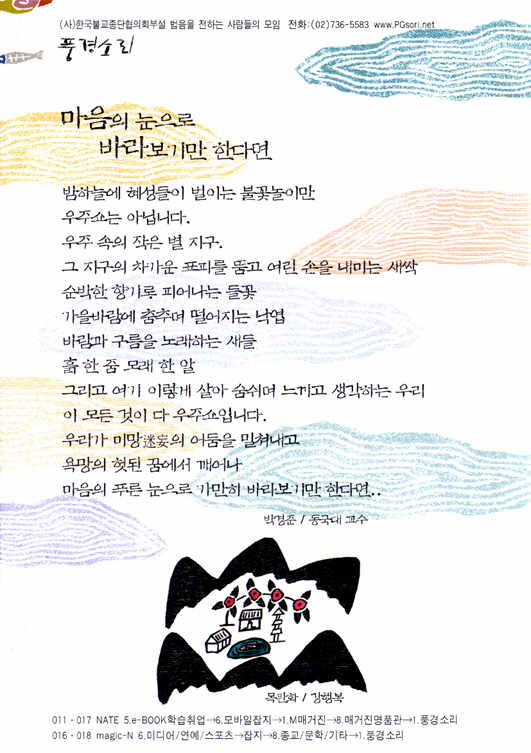 (사)한국불교종단협의회부설 법음을 전하는 사람들의 모임 전화:(02)736-5583 www.PGsori.net
풍경소리
마음의 눈으로
바라보기만 한다면
밤하늘에 혜성들이 벌이는 불꽃놀이만
우주쇼는 아닙니다.
우주 속의 작은 별 지구.
그 지구의 차가운 표피를 뚫고 여린 손을 내미는 새싹
순박한 향기로 피어나는 들꽃
가을바람에 춤추며 떨어지는 낙엽
바람과 구름을 노래하는 새들
흙 한 줌 모래 한 알
그리고 여기 이렇게 살아 숨쉬며 느끼고 생각하는 우리
이 모든 것이 다 우주쇼입니다.
우리가 미망迷妄의 어둠을 밀쳐내고
욕망의 헛된 꿈에서 깨어나
마음의 푸른 눈으로 가만히 바라보기만 한다면..
박경준 / 동국대 교수
목판화 / 강행복
011·017 NATE 5.e-BOOK학습취업→6.모바일잡지→1.M매거진→8.매거진명품관→1.풍경소리
016·018 magic-N 6.미디어/연예/스포츠→잡지→8.종교/문학/기타→1.풍경소리